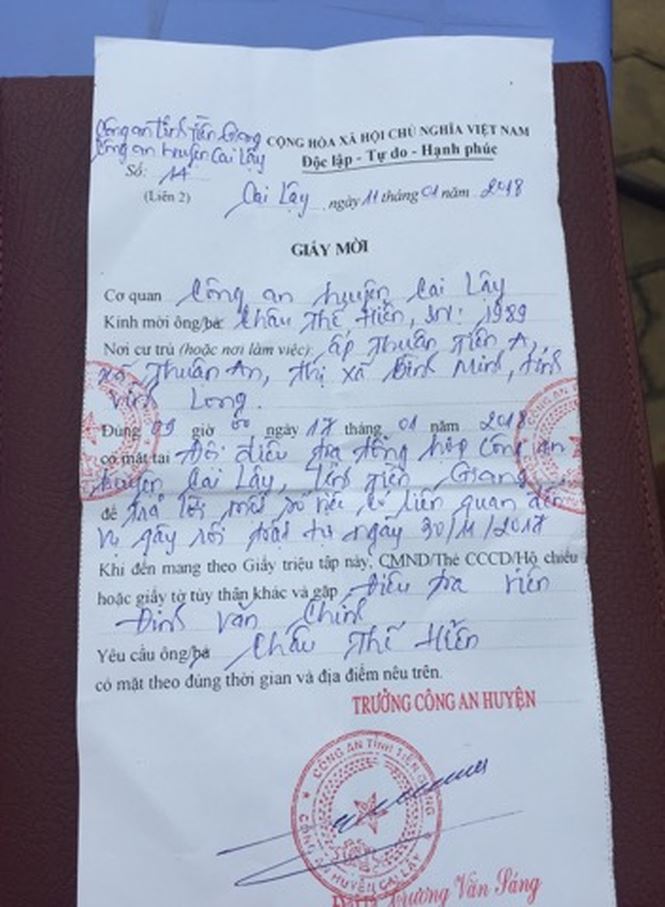 Công an tỉnh Tiền Giang
Công an huyện Cai Lậy
CỘNG HÒA XÃ HỘI CHỦ NGHĨA VIỆT NAM
Độc lập - Tự do - Hạnh phúc
Số: 14
(Liên 2)
Cai Lậy, ngày 11 tháng 01 năm 2018
GIẤY MỜI
Cơ quan Công an huyện Cai Lậy
Kính mời ông/bà Châu Thế Hiển, sn: 1989
Nơi cư trú (hoặc nơi làm việc): ấp Thuận Tiến A,
xã Thuận An, thị xã Bình Minh, tỉnh
Vĩnh Long.
Đúng 09 giờ 00 ngày 17 tháng 01 năm 2018
có mặt tại Đội điều tra tổng hợp Công an
huyện Cai Lậy, tỉnh Tiền Giang
để trả lời một số việc có liên quan đến
vụ gây rối trật tự ngày 30/11/2017
Khi đến mang theo Giấy triệu tập này, CMND/Thẻ CCCD/Hộ chiếu
hoặc giấy tờ tùy thân khác và gặp Điều tra viên
Đinh Văn Chinh
Yêu cầu ông/bà Châu Thế Hiển
có mặt theo đúng thời gian và địa điểm nêu trên.
TRƯỞNG CÔNG AN HUYỆN
CÔNG AN TỈNH TIỀN GIANG
CÔNG AN HUYỆN CAI LẬY
Trương Văn Sáng